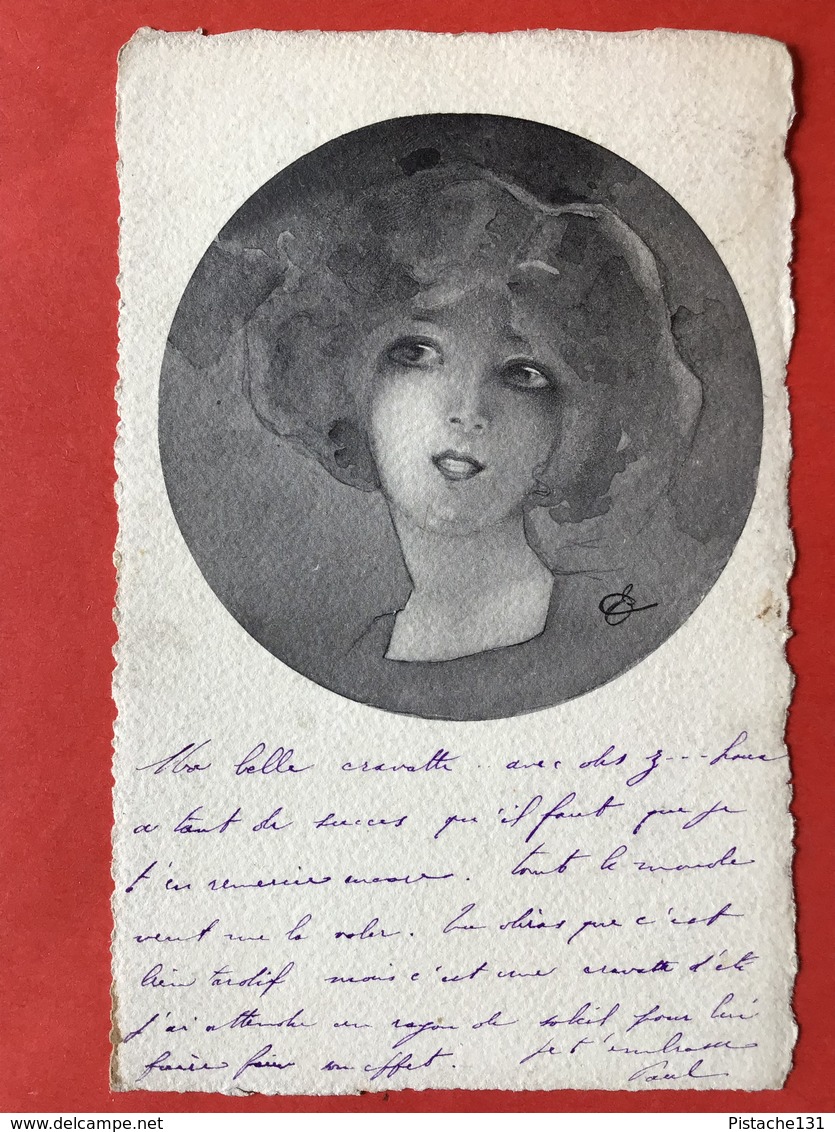 Ma belle cravatte.. avec des z---
a tant de succes qu'il faut que je
t'en remercie encore. tout le monde
veut me la voler. Tu diras que c'est
bien tardif mais c'est une cravatte d'été
j'ai attendu un rayon de soleil pour lui
faire faire son effet. Je t'embrasse
Paul
Pistache131